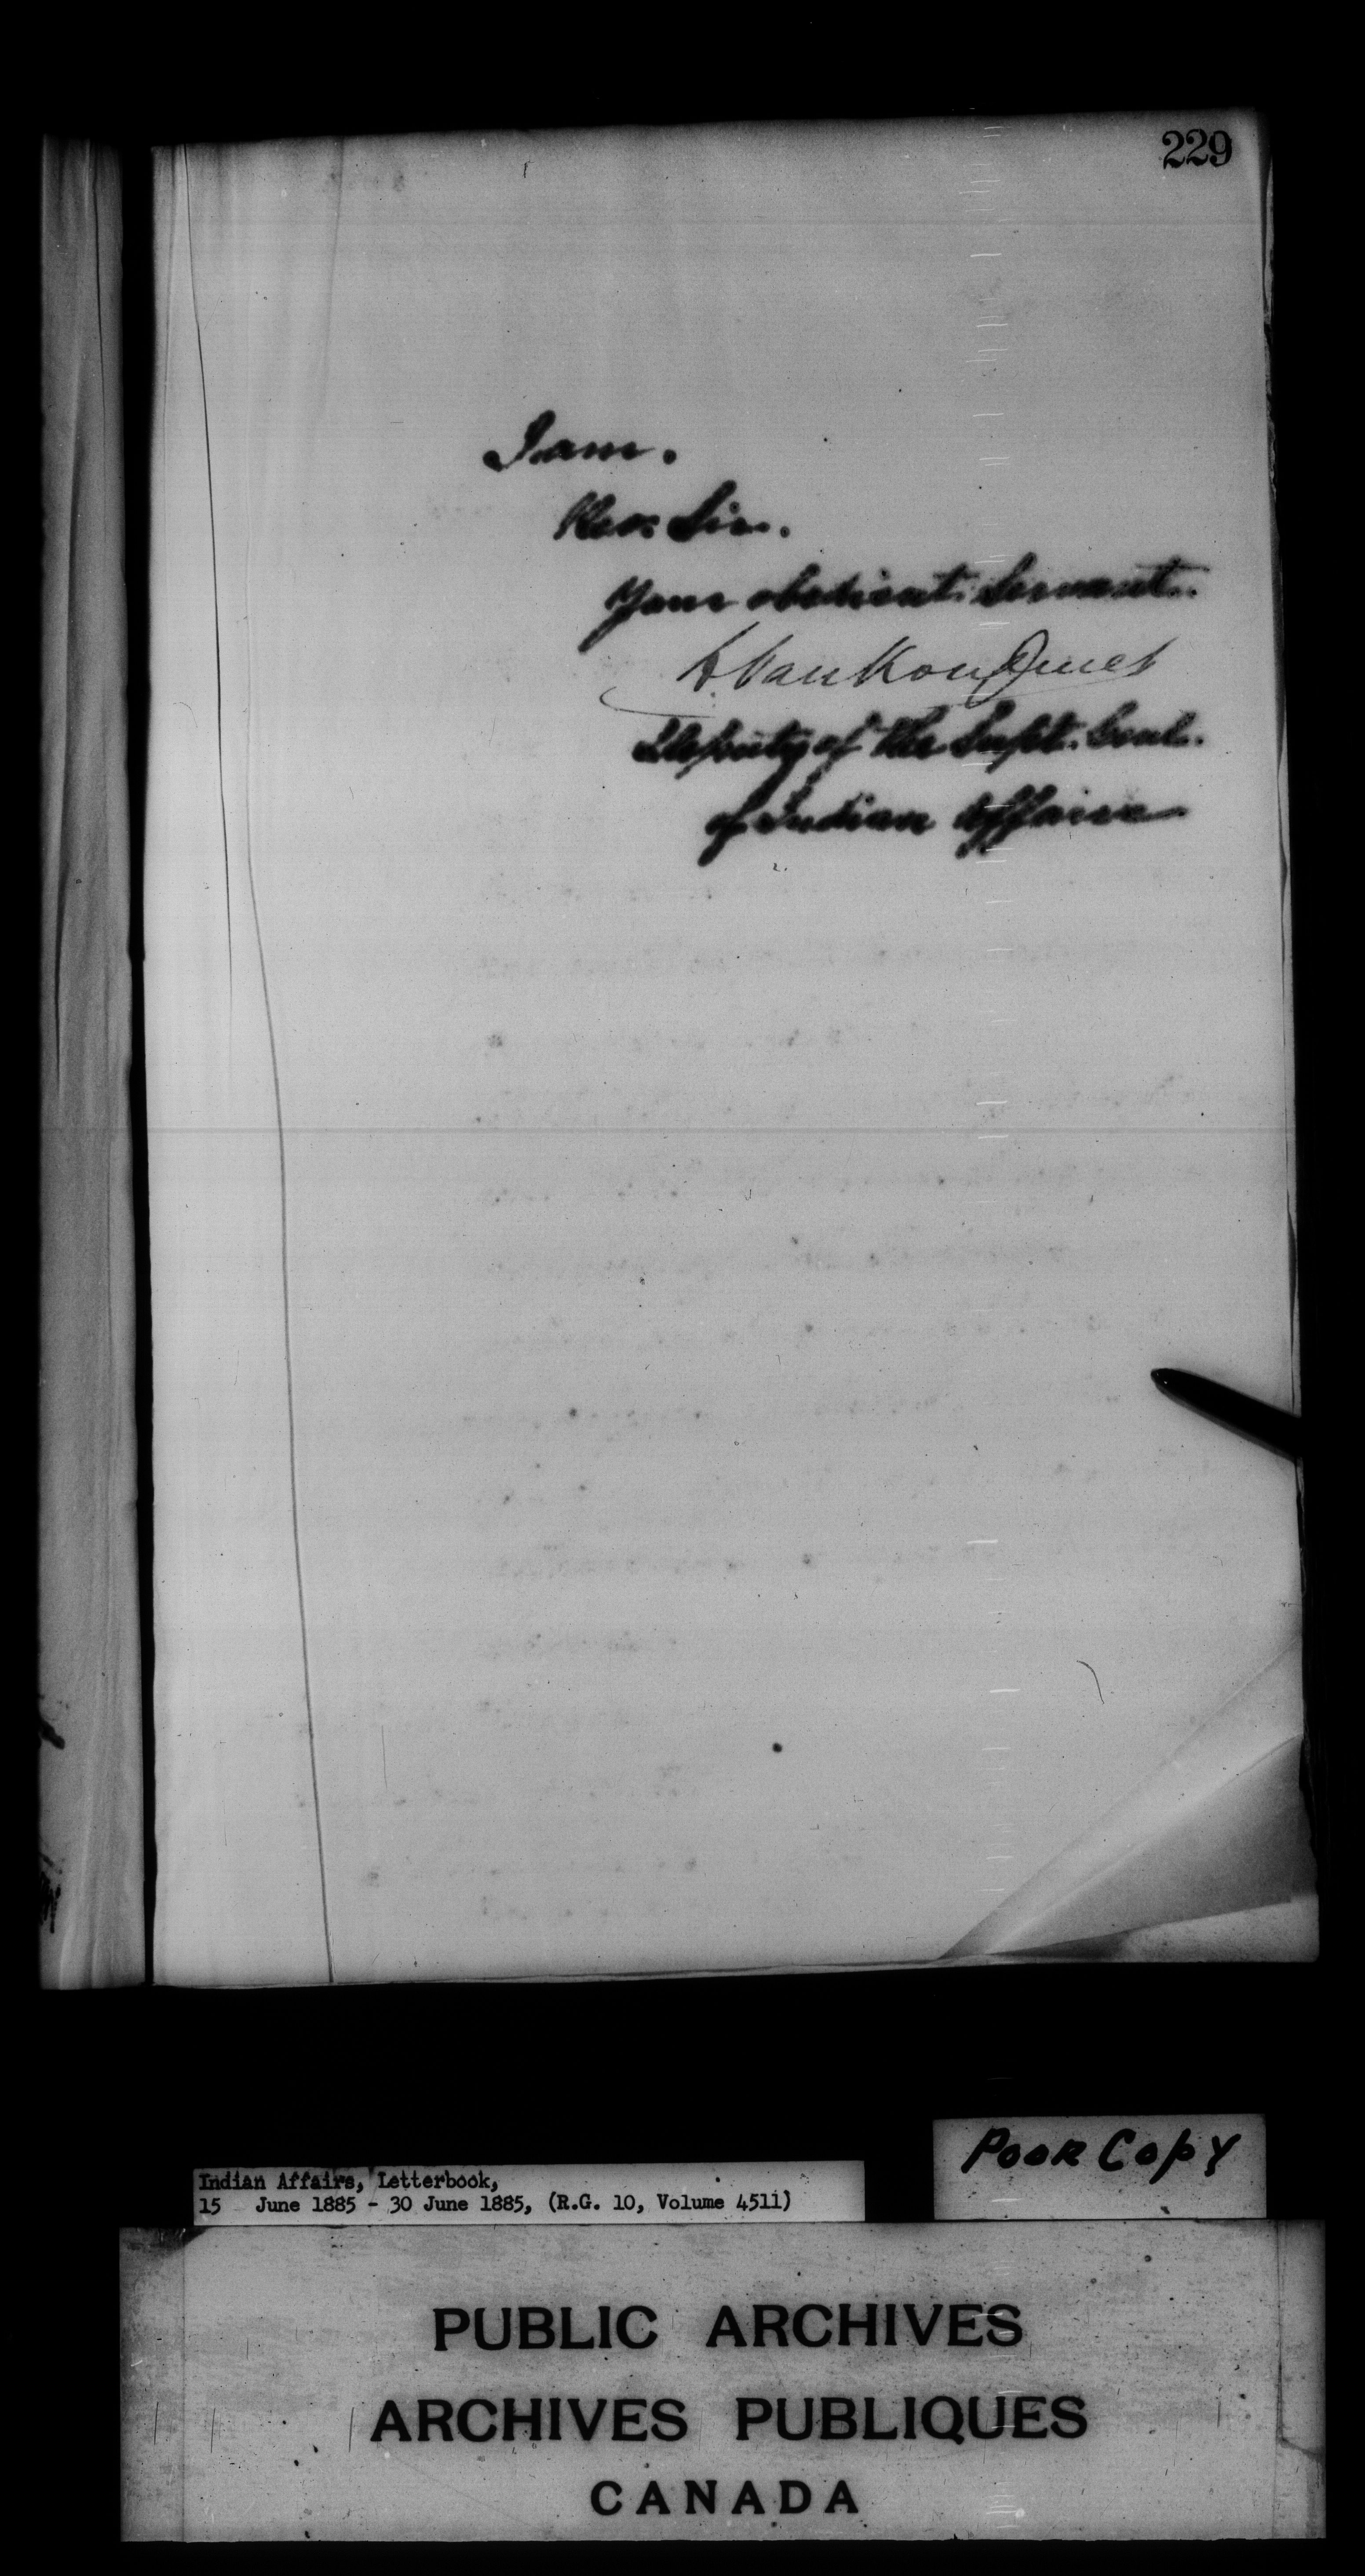 229
I am.
Rev. Sir.
Your obedient Servant.
L VanKoughnet
Deputy of the Supt. Genl.
of Indian Affairs
Poor Copy
Indian Affairs, Letterbook,
15 June 1885 - 30 June 1885, (R.G. 10, Volume 4511)
PUBLIC ARCHIVES
ARCHIVES PUBLIQUES
CANADA